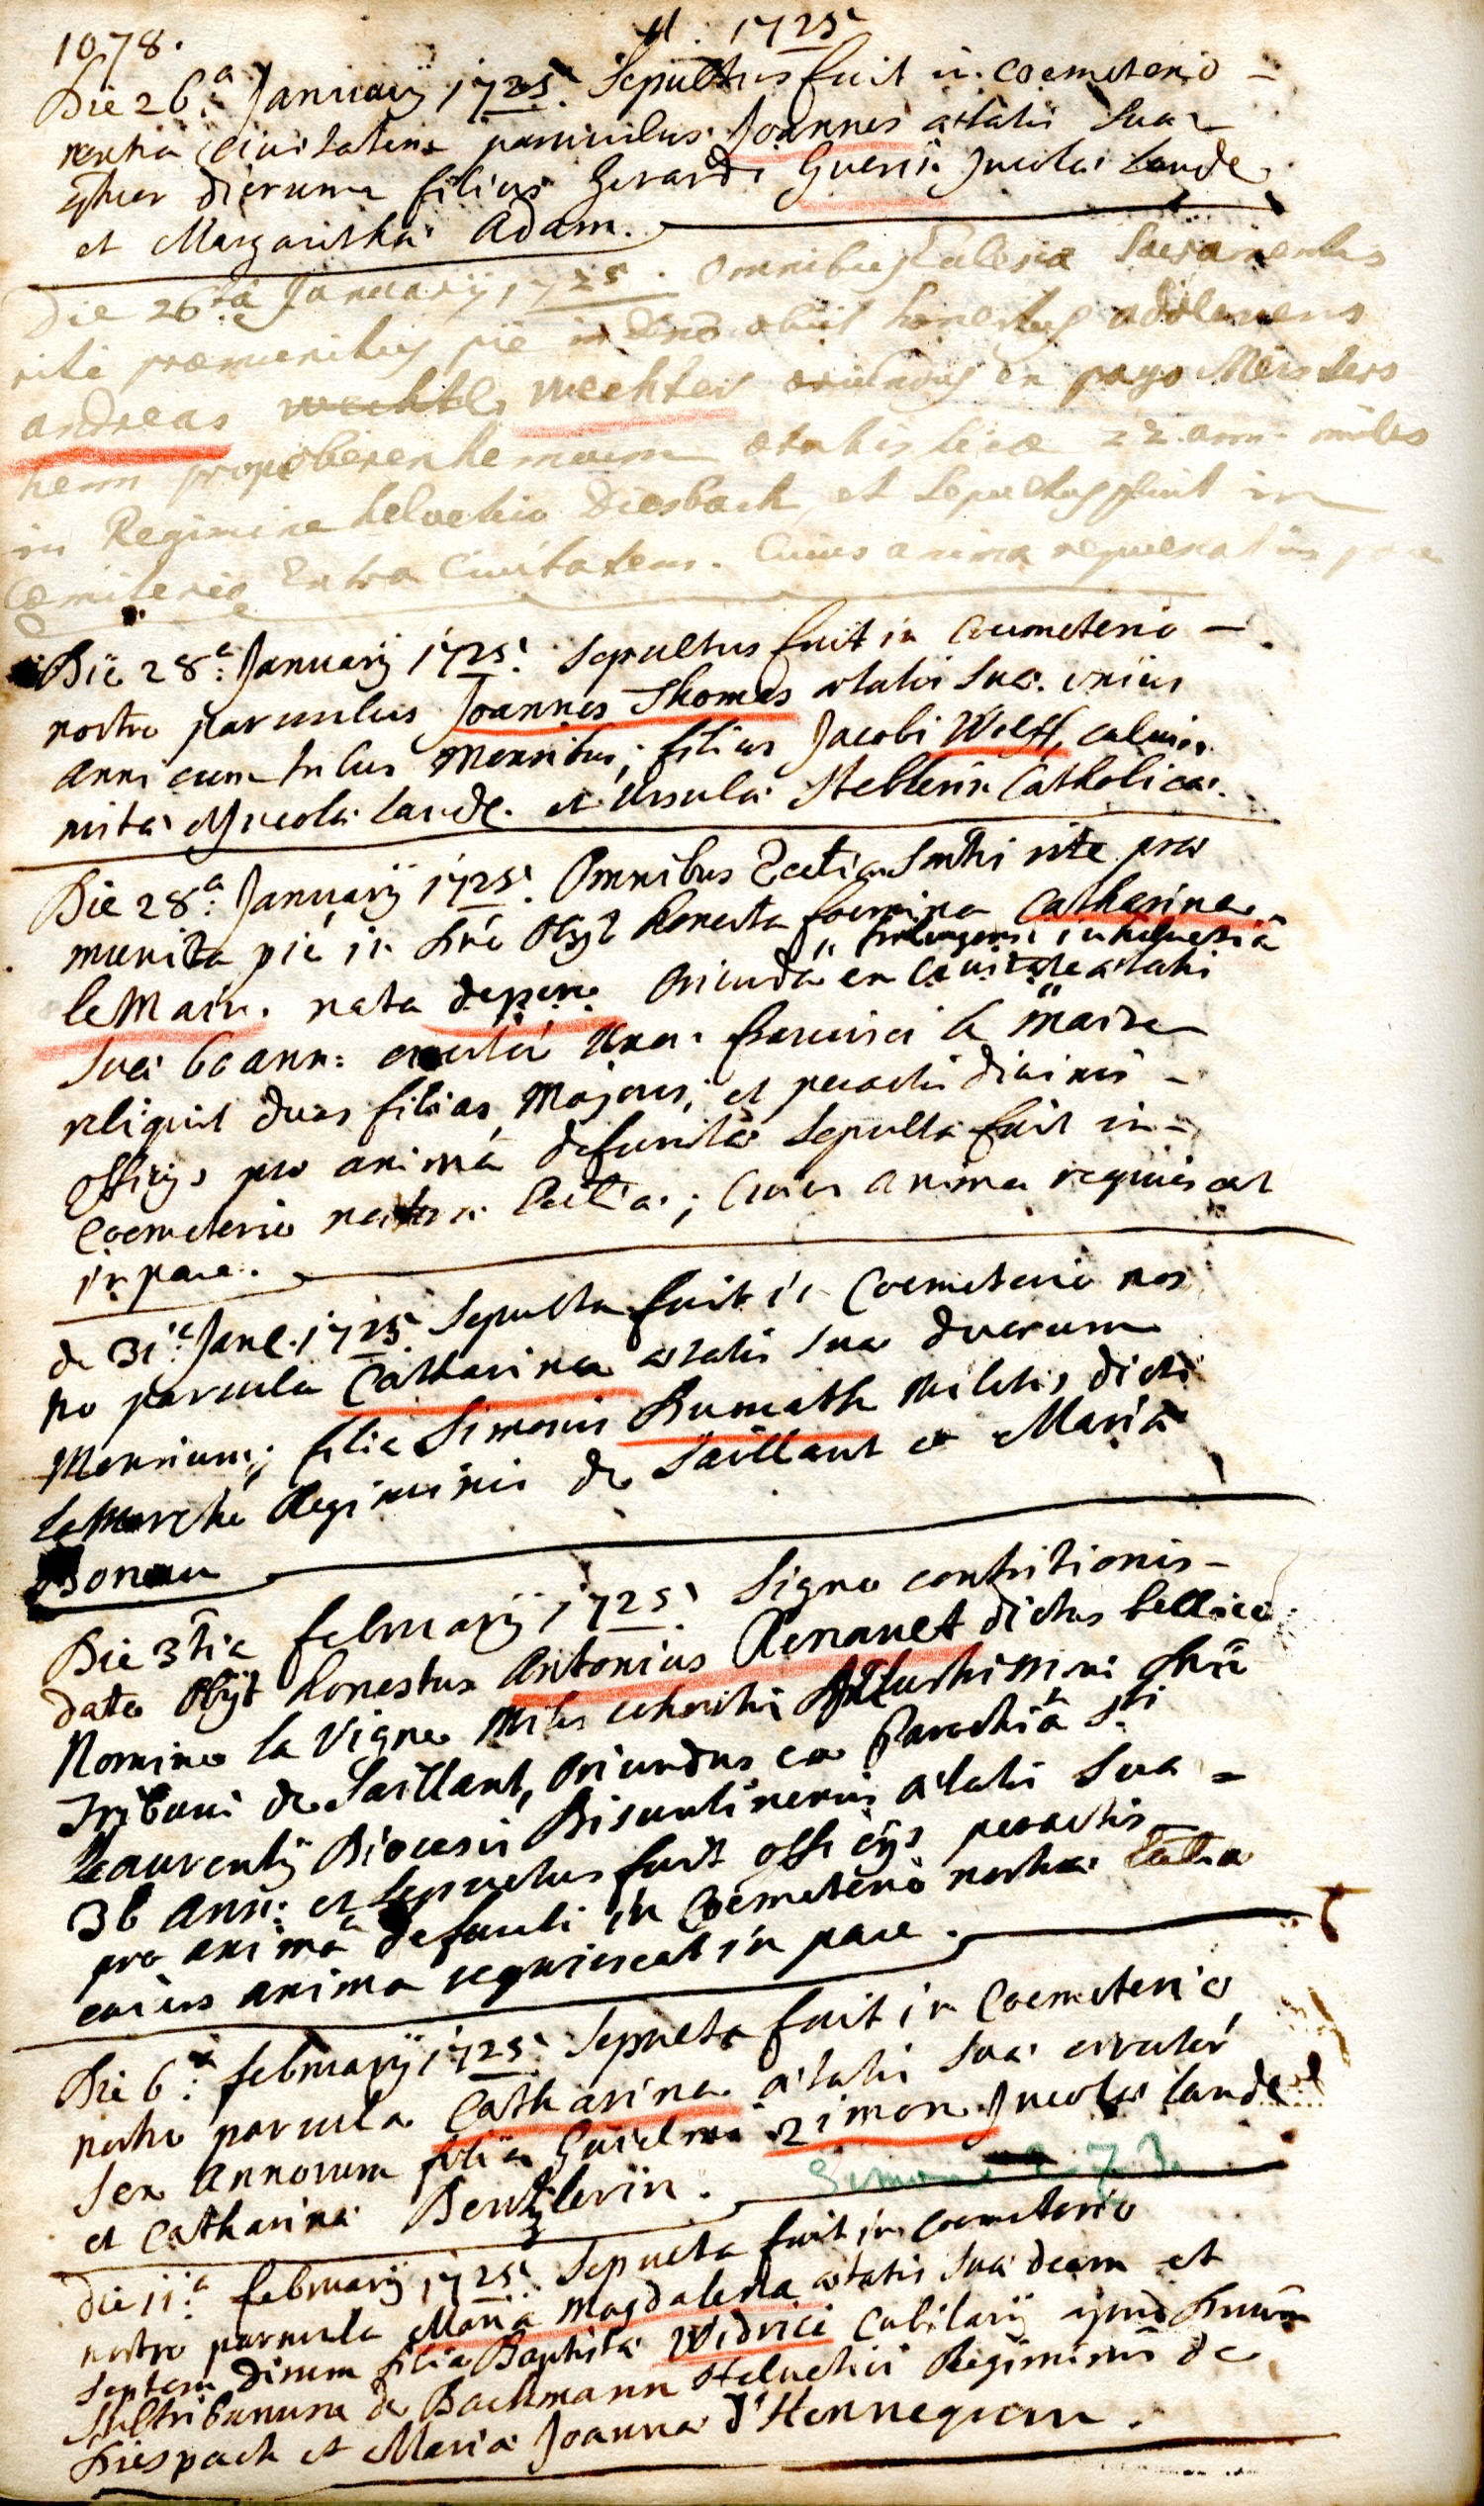 1078.
d. 1725
Die 26.a Januarij 1725. Sepultus fuit in coemeterio -
extra civitatem parvulus Joannes ætatis suæ
dierum filius Gerardi Guerin Incolæ Landæ
et Margarithæ Adam.
Die 26ta Januarij 1725. omnibus Ecclesiæ Sacramentis
rite præmunitus pie in dnō obiit honestus adolescens
andreas wechter oriundus ex pago Meisters
heim prope ætatis suæ 22 ann. miles
in Regimine helvetico Diesbach, et Sepultus fuit in
Cœmiterio Extra Civitatem. Cuius anima requiescat in pace
Die 28.a Januarij 1725. Sepultus fuit in Coemeterio -
nostro parvulus Joannes Thomas ætatis suæ unius
anni cum tribus Mensibus; filius Jacobi Wolff, calvi
nistæ Incolæ Landæ. et Ursulæ Steblerin Catholicæ.
Die 28.a Januarij 1725. Omnibus Ecclīæ Smtis rite præ
munita piè in dnō Obijt honesta foemina Catharina
in helvetia
le Mair. nata depere Oriunda ex Civitate ætatis
suæ 60 ann: circiter Uxor Francisci le Maire
reliquit duas filias Majores; et peractis divinis -
officijs pro animâ defunctæ Sepulta fuit in -
Coemeterio nostræ Ecclīæ; Cuius anima requiescat
in pace.
d. 31.a Janu. 1725 Sepulta fuit in Coemeterio nos
tro parvula Catharina ætatis suæ duorum
Mensium; filia Simonis Bumath Militis, dicti
la Marche Regiminis de Saillant et Mariæ
Bonau
Die 3tia februarij 1725. Signo contritionis -
dato Obijt honestus Antonius Renauet dictus bellico
Nomine la Vigne Miles cohortis Illustrissimi dnī
Tribuni de Saillant, Oriundus ex Parochiâ Sti
Laurentij Diocesis Bisuntinensis ætatis suæ =
36 ann: et Sepultus fuit officijs peractis
pro animâ defuncti in Coemeterio nostræ Ecclīæ
cuius anima requiescat in pace.
Die 6.a februarij 1725. Sepulta fuit in Coemeterio
nostro parvula Catharina ætatis suæ circiter
Sex Annorum filia Guilelmi Zimon Incolæ Landæ
et Catharinæ Bentzlerin.
die 11.a februarij 1725. Sepulta fuit in Coemeterio
nostro parvula Maria Magdalena ætatis suæ decem et
Septem dierum filia Baptistæ Widrici Cubilarij apud Dnum
de Backmann Helvetici Regiminis de
Diespach et Mariæ Joannæ d'Hennegran.